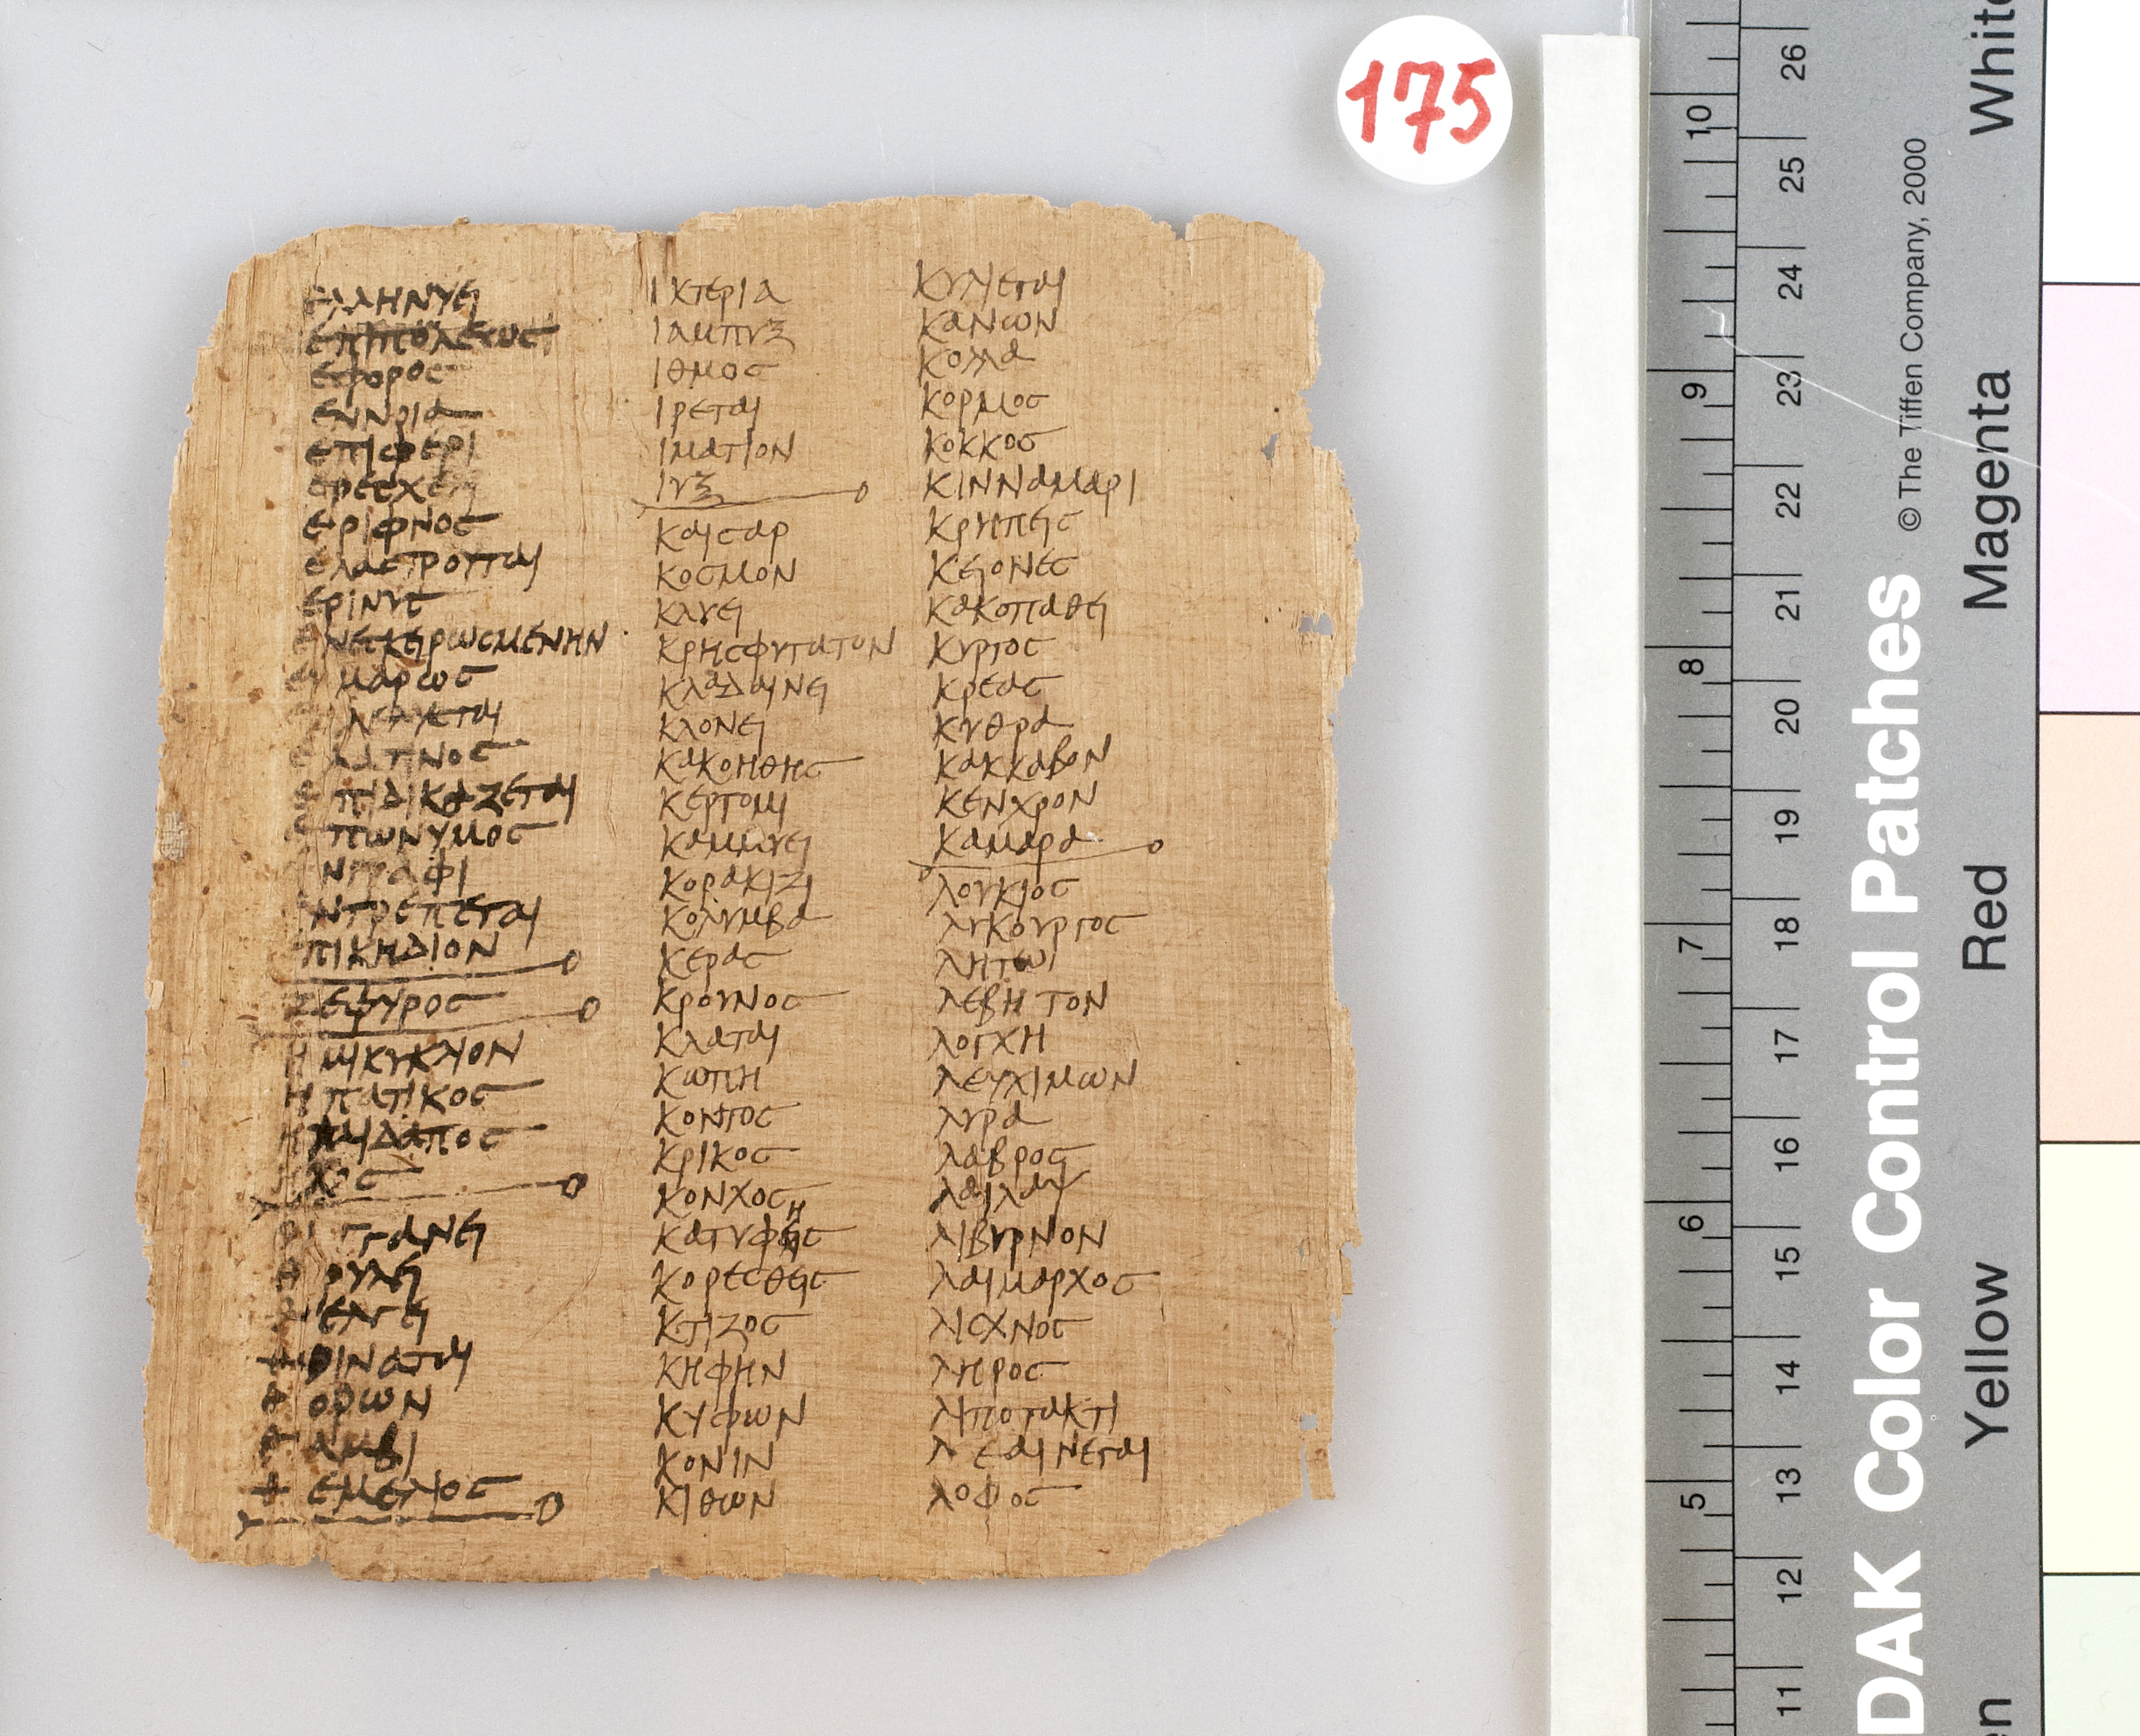 175
ελληνυει
εφορος
εννοια
επιφερι
εριφνος
ελαστροπται
ερινυς
μαρως
επιδικαζεται
επωνυμος
εντρεπεται
επικηδιον
ζεφυρος
ημικυκλιον
ηπατικος
θιγγανει
θρυλει
θελγει
θοινατai
θορων
θαμβι
θεμελιος
ικτερια
ιαμπυξ
ιθμος
ιρεται
ιματιον
ιυξ
καισαρ
κοσμον
κλυει
κρησφυγατον
κλαδαινει
κλονει
κακοηθης
κερτομι
καμμυει
κορακιζι
κολυμβα
κερας
κρουνος
κλαται
κωπη
κοντος
κρικος
κονχος
κατυφης
κορεσθεις
κτιζος
κηφην
κυφων
κονιν
κιθων
κυλιεται
κανων
κολλα
κορμος
κοκκος
κινναμαρι
κρηπεις
κειονες
κακοπαθει
κυρτος
κρεας
κυθρα
κακκαβον
κενχρον
καμαρα
λουκιος
λυκουργος
λητωι
λεβητον
λογχη
λευχιμων
λυρα
λαβρος
λαιλαψ
λιβυρνον
λαιμαρχος
λισχνος
ληρος
λιποτακτι
λεαινεται
λοφος
10
9
8
7
6
5
26
25
24
23
22
21
20
19
18
17
16
15
14
13
12
11
© The Tiffen Company, 2000
DAK Color Control Patches
White
Magenta
Red
Yellow